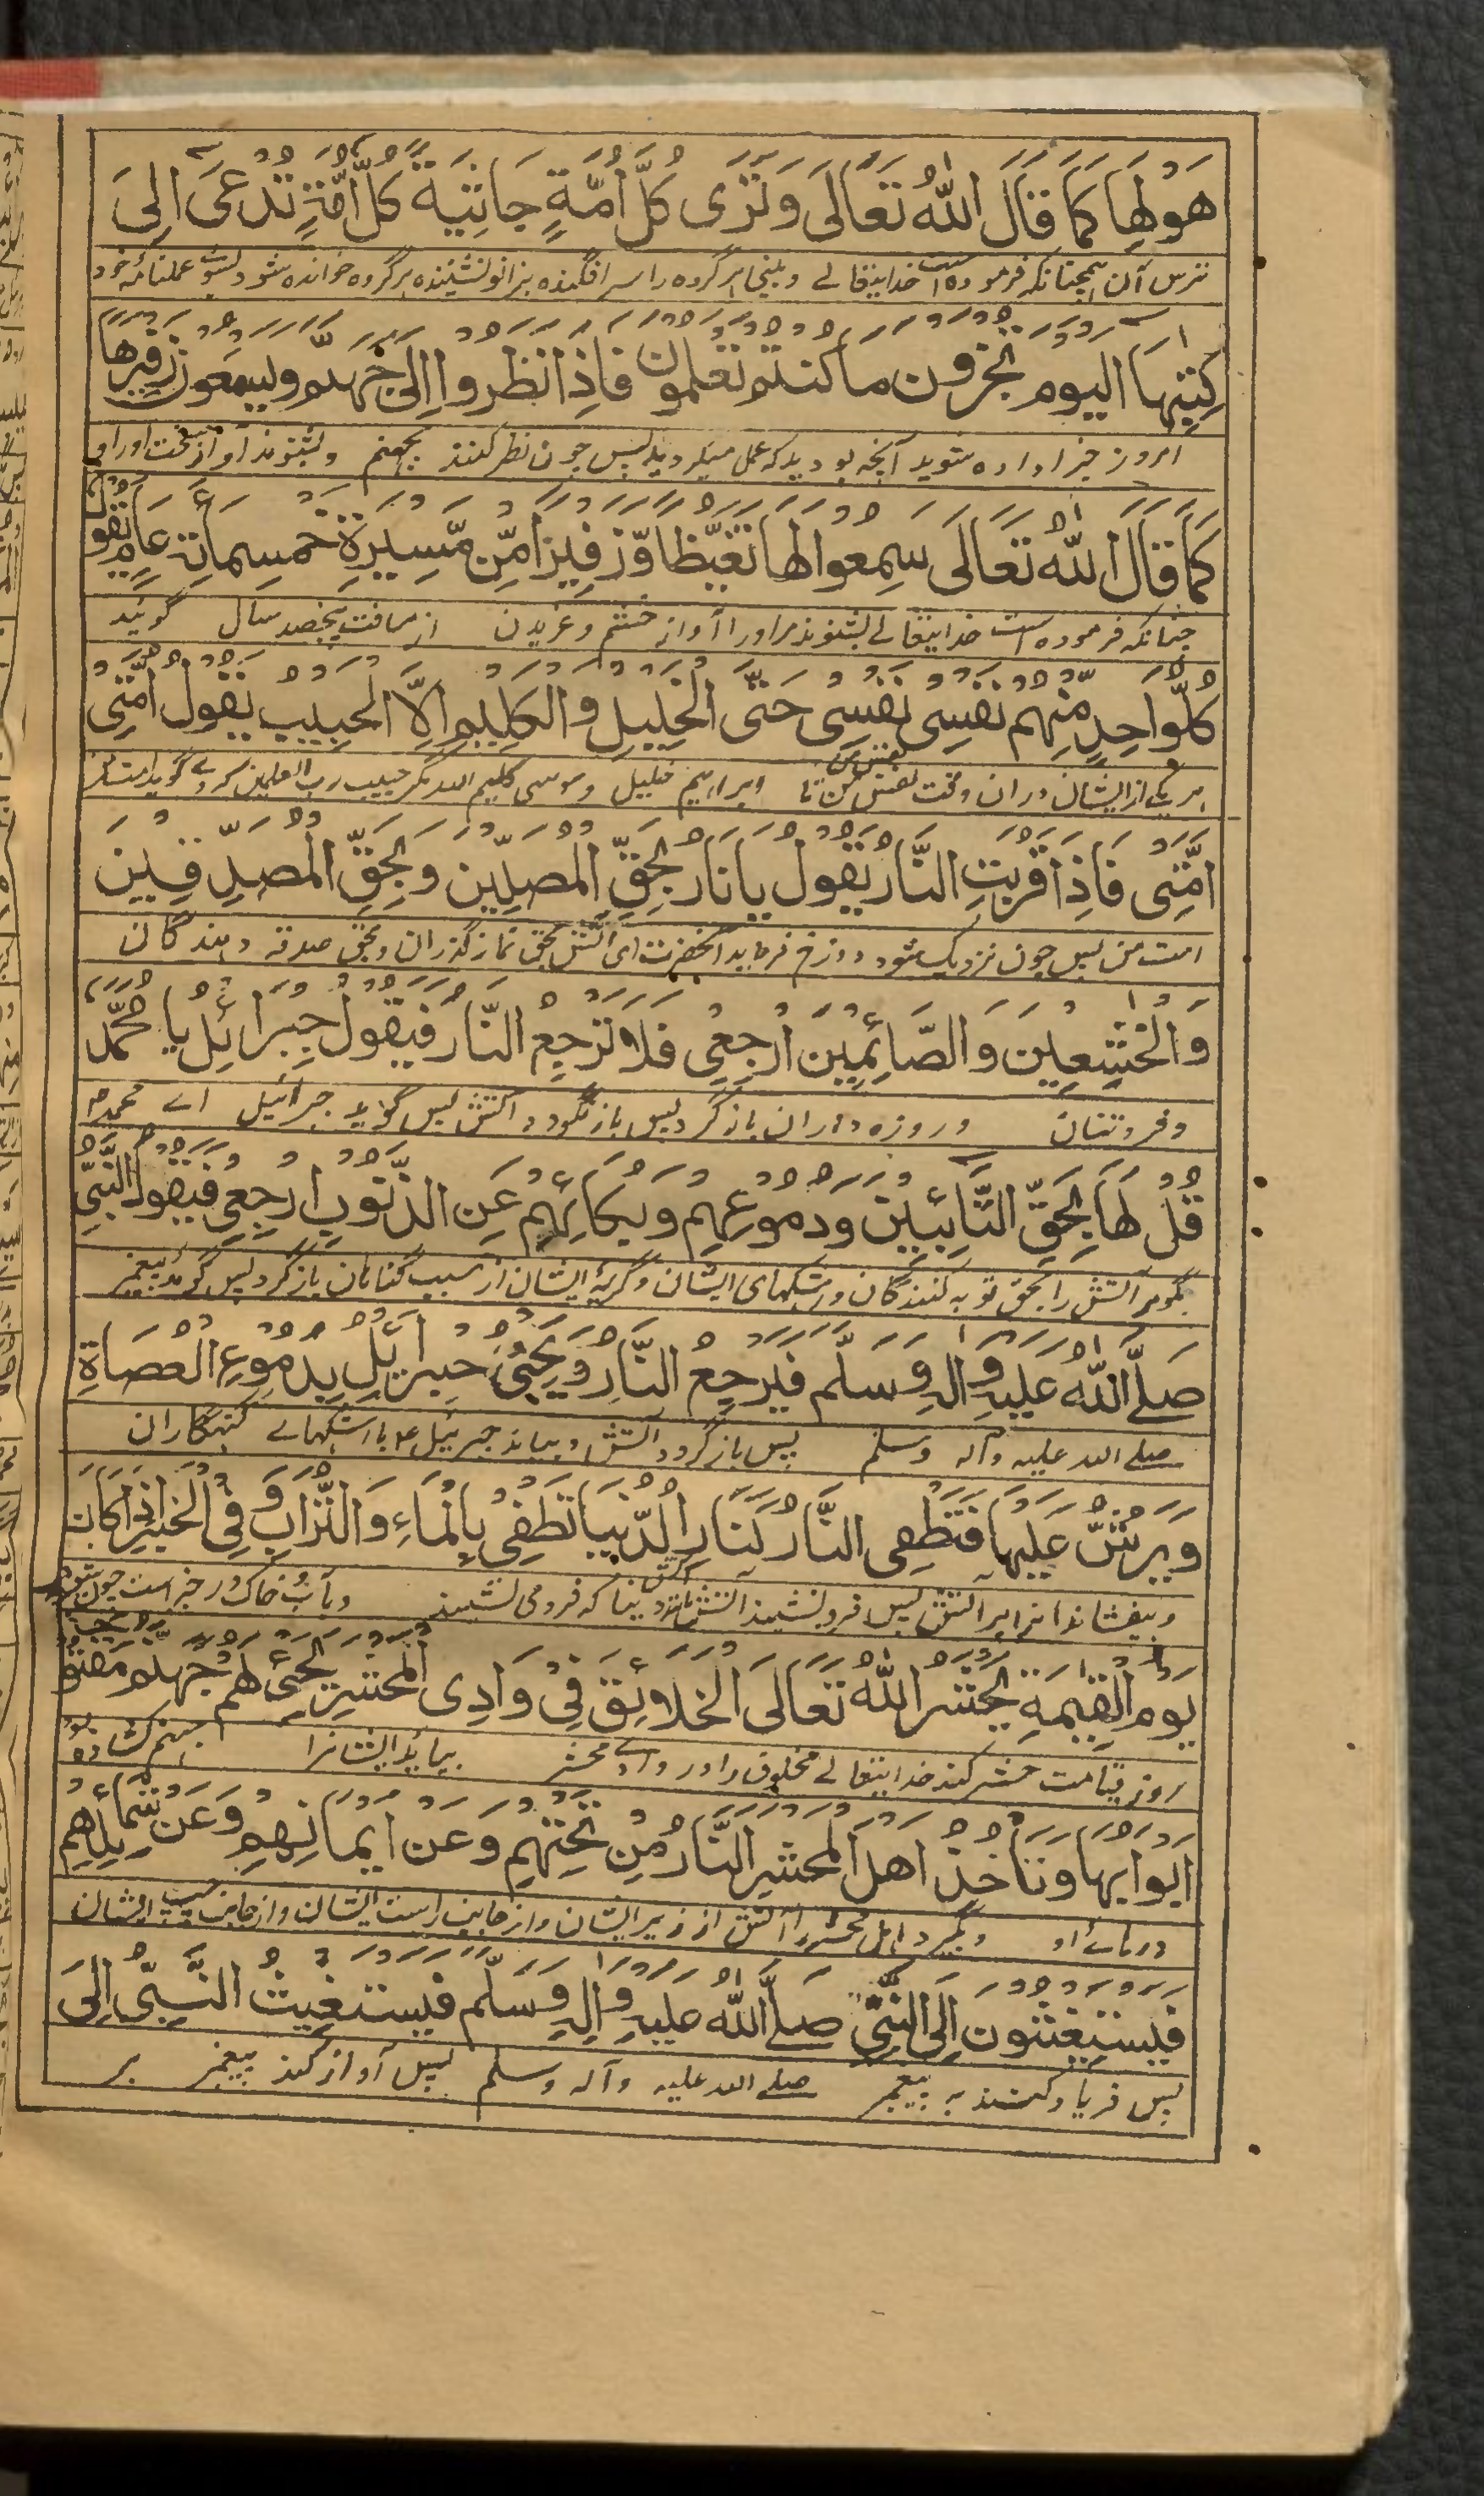 هَوْلِهَا كَمَا قَالَ اللّٰهُ تَعَالَى وَتَرَى كُلَّ أُمَّةٍ جَاثِيَةً كُلُّ أُمَّةٍ تُدْعَى إِلَى
ترس آن همچنانکه فرموده است خدایتعالے و بینی هر گروه را سرافگنده بزانو نشیننده هر گروه خوانده شود بسوے عملنامه خود
كِتٰبِهَا الْيَوْمَ تُجْزَوْنَ مَا كُنْتُمْ تَعْلَمُوْنَ فَاِذَا نَظَرُوْا اِلَى جَهَنَّمَ وَيَسْمَعُوْنَ زَفِيْرَهَا
امروز جزا داده شوید آنچه بودید که عمل میکردید پس چون نظر کنند بجهنم و بشنوند آواز سخت اورا
كَمَا قَالَ اللّٰهُ تَعَالَى سَمِعُوا لَهَا تَغَيُّظًا وَّزَفِيْرًا مِّنْ مَّسِيْرَةِ خَمْسِمِائَةِ عَامٍ يَقُوْلُ
چنانکه فرموده است خدایتعالے بشنوند مر اورا آواز خشم و غریدن از مسافت پنجصد سال گوئید
كُلُّ وَاحِدٍ مِّنْهُمْ نَفْسِى نَفْسِى حَتَّى الْخَلِيْلِ وَالْكَلِيْمِ اِلَّا الْحَبِيْبَ يَقُوْلُ اُمَّتِى
هر یک از ایشان دران وقت نفس من نفس من تا ابراهیم خلیل و موسی کلیم الله مگر حبیب رب العلمین که وے گوید امت من
اُمَّتِى فَاِذَا قَرُبَتِ النَّارُ يَقُوْلُ يَا نَارُ بِحَقِّ الْمُصَلِّيْنَ وَبِحَقِّ الْمُصَدِّقِيْنَ
امت من پس چون نزدیک شود دوزخ فرماید آنحضرت ای آتش بحق نماز گذران و بحق صدقه دهندگان
وَالْخٰشِعِيْنَ وَالصَّائِمِيْنَ اَرْجِعِى فَلَا تَرْجِعُ النَّارُ فَيَقُوْلُ جِبْرَائِلُ يَا مُحَمَّدُ
و فروتنان و روزه داران باز گرد پس باز نگردد آتش پس گوید جبرائیل اے محمدؐ
قُلْ لَهَا بِحَقِّ التَّائِبِيْنَ وَدُمُوْعِهِمْ وَبُكَائِهِمْ عَنِ الذُّنُوْبِ ارْجِعِى فَيَقُوْلُ النَّبِيُّ
بگو مر آتش را بحق توبه کنندگان و اشکهای ایشان و گریۀ ایشان از سبب گناهان باز گرد پس گوید پیغمبر
صَلَّى اللّٰهُ عَلَيْهِ وَاٰلِهٖ وَسَلَّمَ فَيَرْجِعُ النَّارُ وَيَجِئُ جِبْرَائِلُ بِدُمُوْعِ الْعُصَاةِ
صلے الله علیه و آله وسلم پس باز گردد آتش و بیاید جبرئیل ع با اشکهاے گنهگاران
وَيَرُشُّ عَلَيْهَا فَتَطْفِى النَّارُ كَنَارِ الدُّنْيَا تَطْفِىْ بِالْمَاءِ وَالتُّرَابِ وَفِى الْخَبَرِ اِذَا كَانَ
و بیفشاند انرا بر آتش پس فرو نشیند آتش مانند آتش دنیا که فرو می نشیند بآب و خاک و در خبر است چون شود
يَوْمُ الْقِيٰمَةِ يَحْشُرُ اللّٰهُ تَعَالَى الْخَلَائِقَ فِىْ وَادِى الْمَحْشَرِ يَجِئُ لَهُمْ جَهَنَّمُ
روز قیامت حشر کند خدایتعالے مخلوق را در وادے محشر بیاید ایشانرا جهنم کشاده
اَبْوَابِهَا وَتَأْخُذُ اَهْلَ الْمَحْشَرِ النَّارُ مِنْ تَحْتِهِمْ وَعَنْ اَيْمَانِهِمْ وَعَنْ شَمَائِلِهِمْ
درهاے او و بگیرد اهل محشر را آتش از زیر ایشان و از جانب راست ایشان و از جانب چپ ایشان
فَيَسْتَغِيْثُوْنَ اِلَى النَّبِيِّ صَلَّى اللّٰهُ عَلَيْهِ وَاٰلِهٖ وَسَلَّمَ فَيَسْتَغِيْثُ النَّبِيُّ اِلَى
پس فریاد کنند به پیغمبر صلے الله علیه و آله وسلم پس آواز کند پیغمبر بر